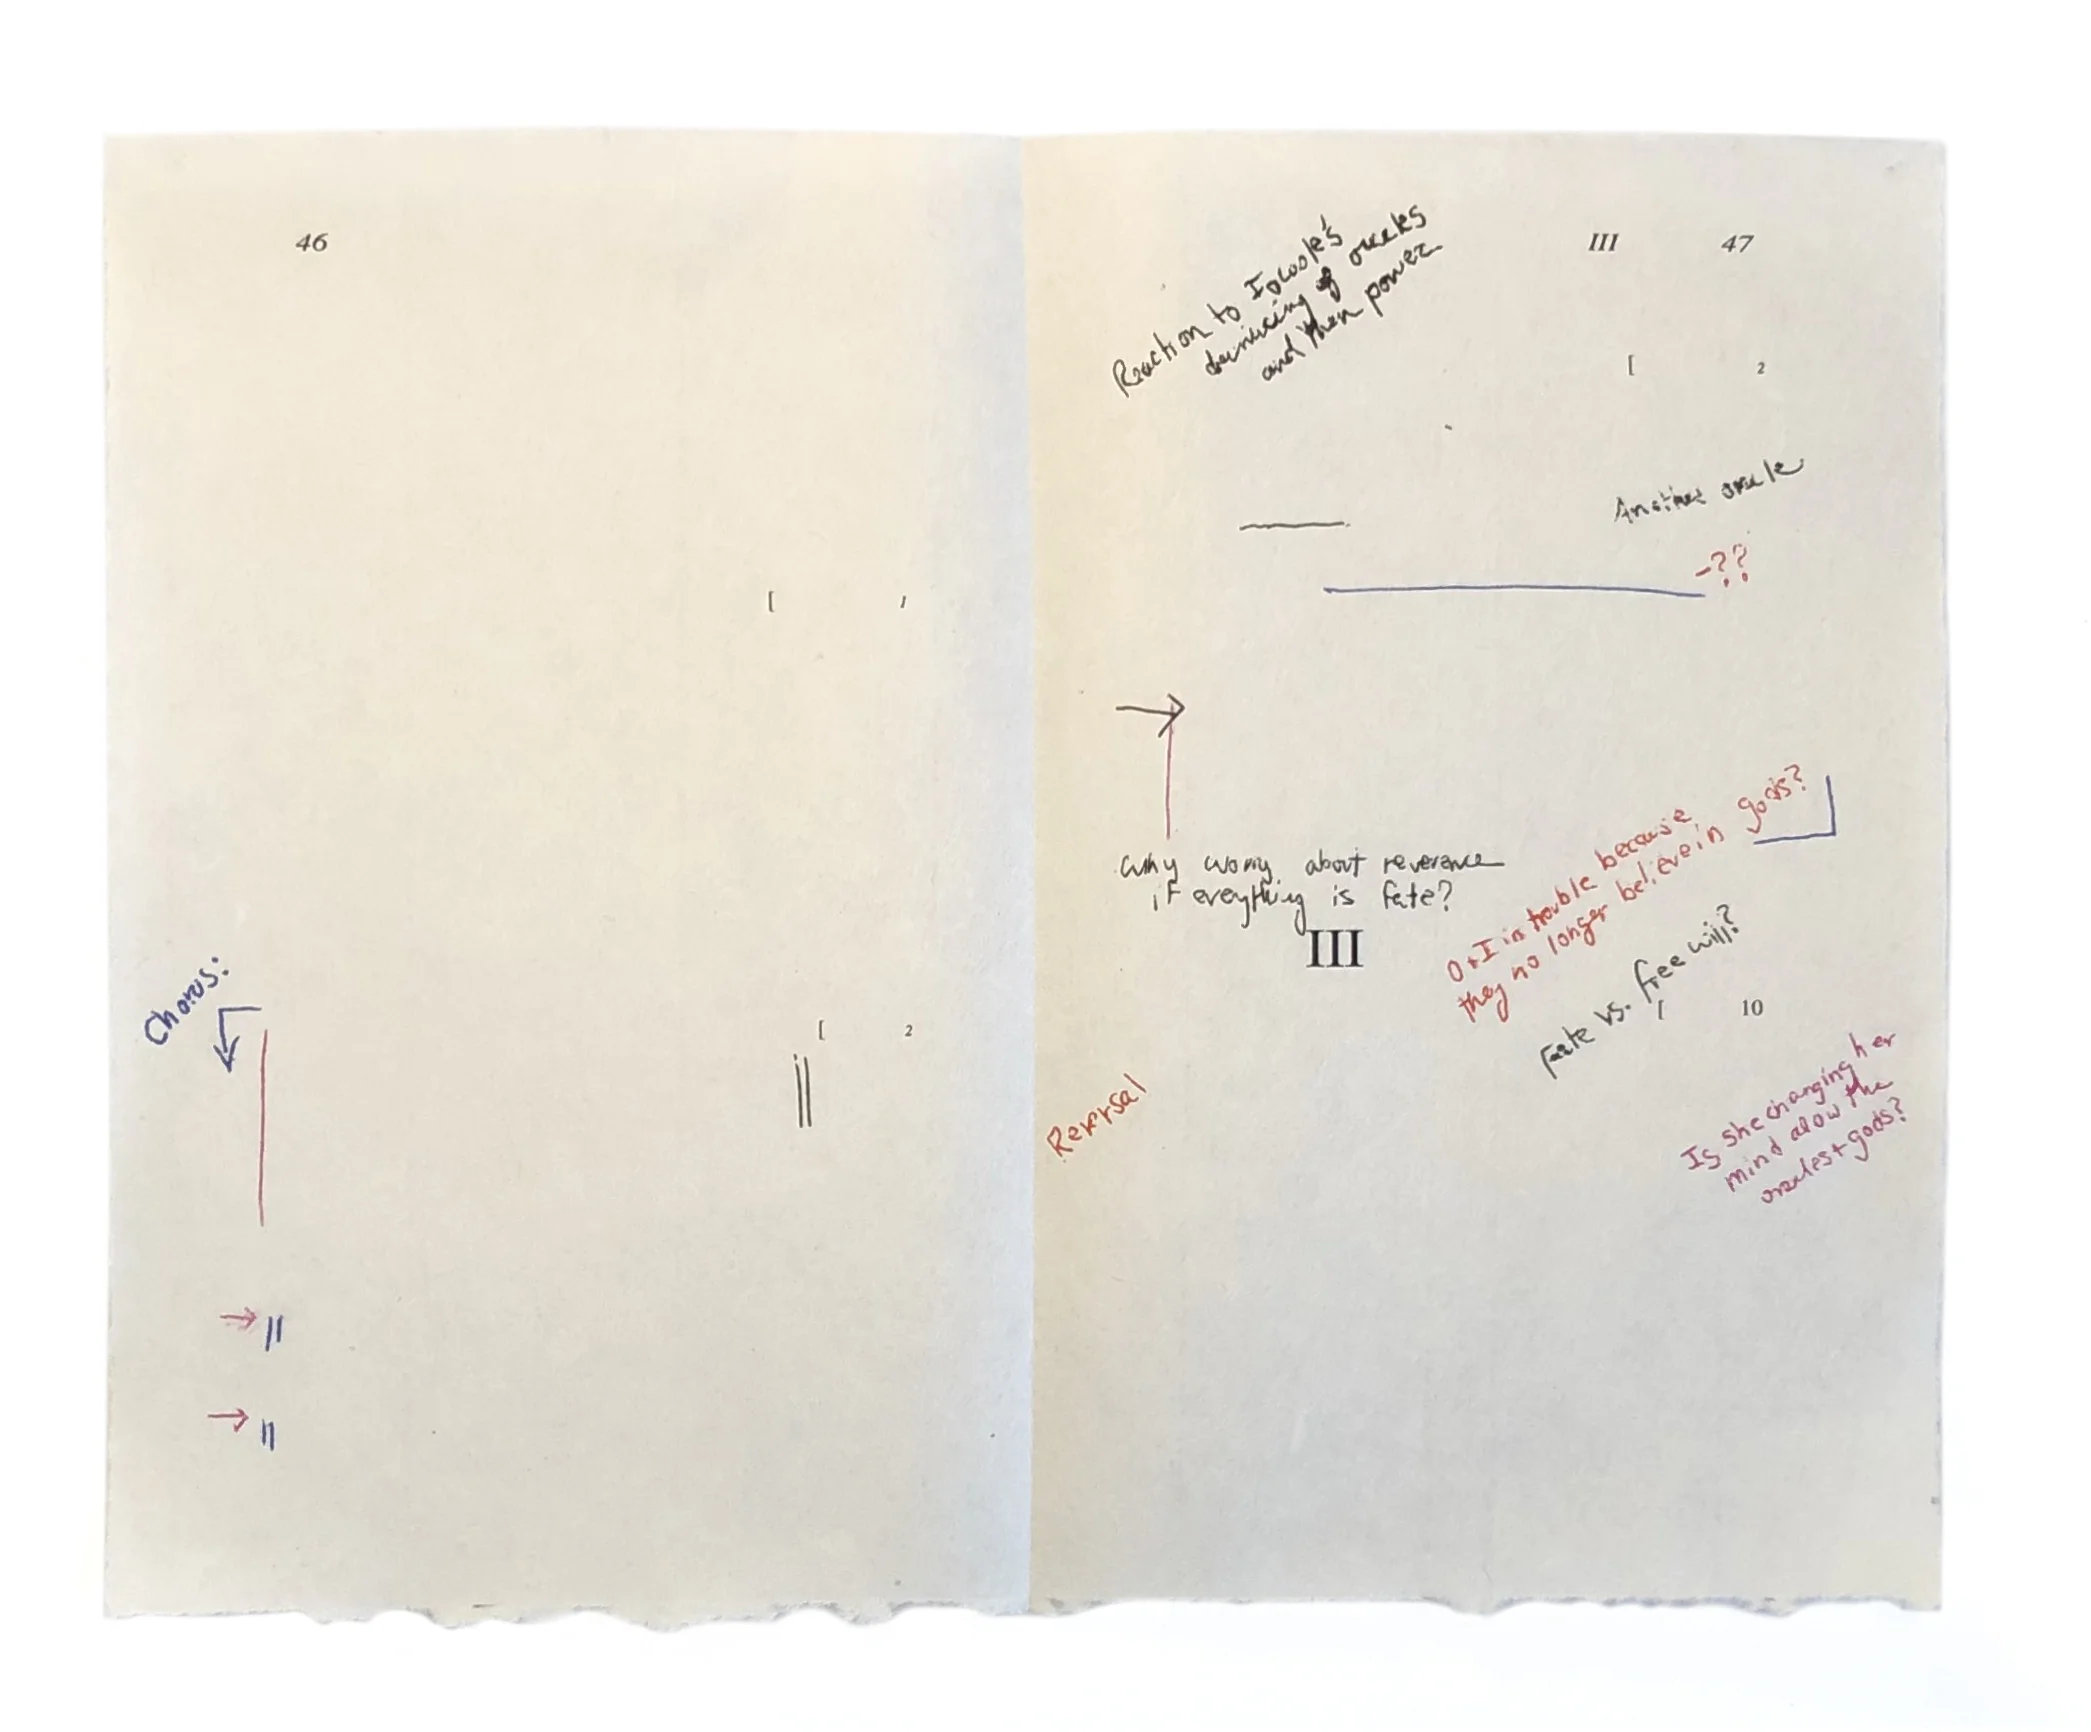 46
[ 1
Chorus:
[ 2
III 47
Reaction to Iocaste's
denouncing of oracles
and their power
[ 2
Another oracle
-??
Why worry about reverance
if everything is fate?
O + I in trouble because
they no longer believe in gods?
III
Fate vs. free will?
[ 10
Reversal
Is she changing her
mind about the
oracles + gods?